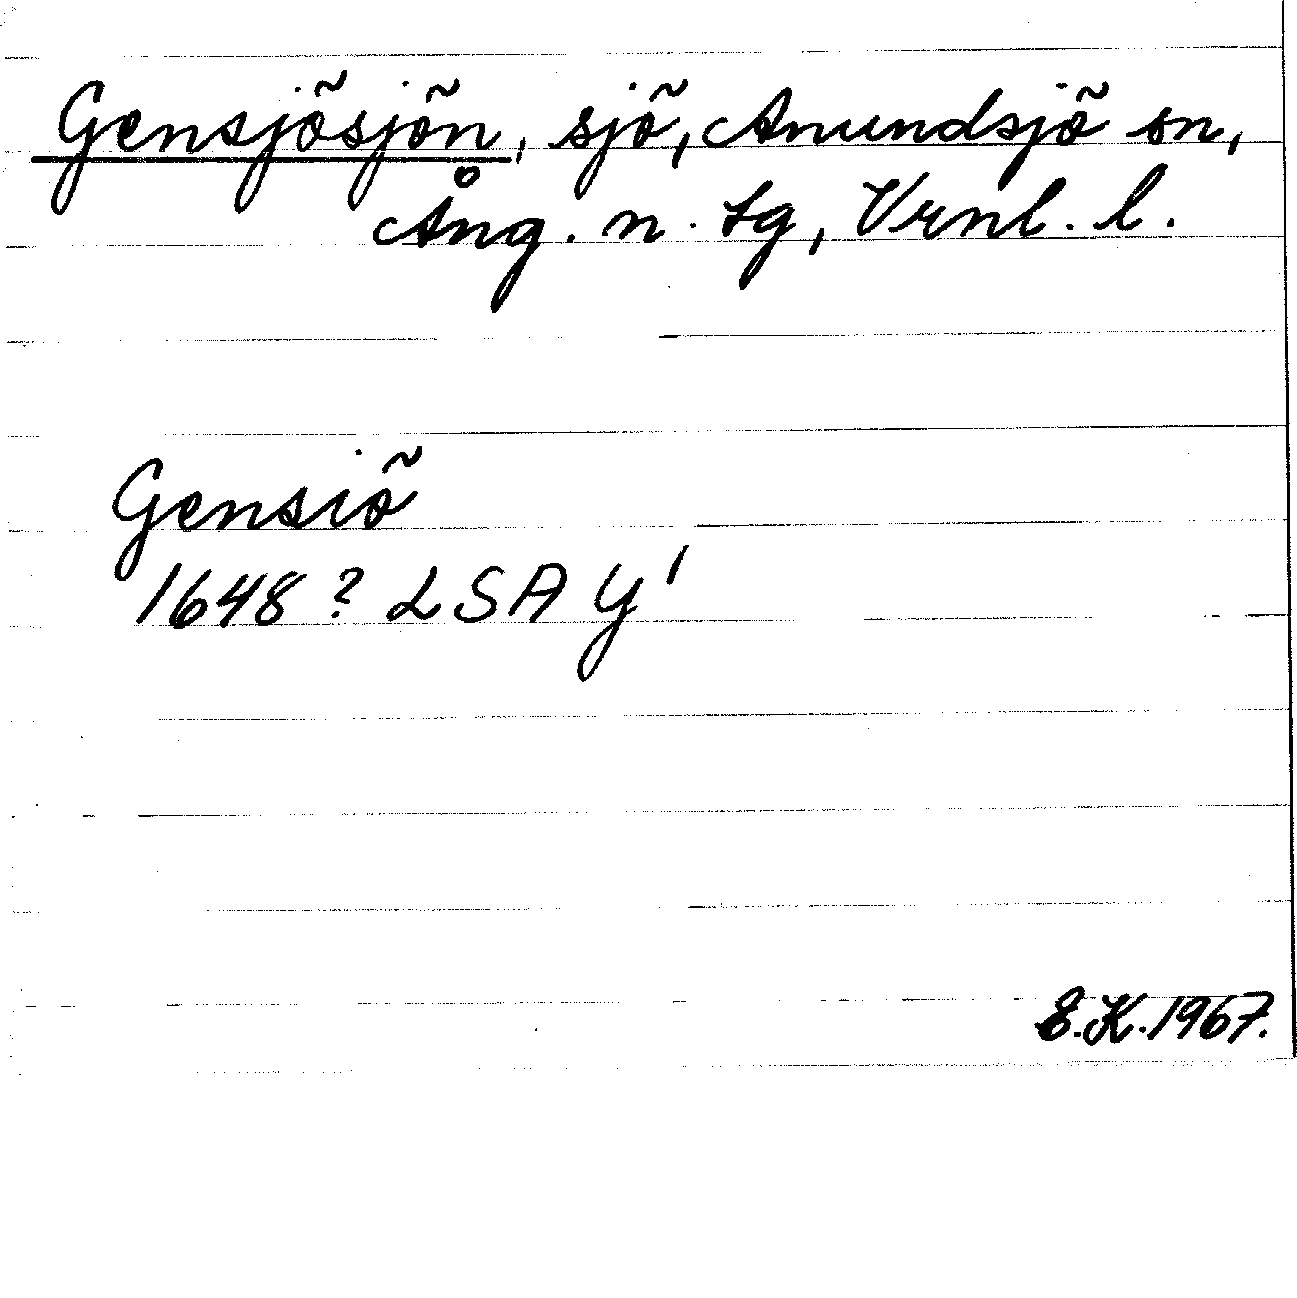 Gensjösjön, sjö, Anundsjö sn,
Ång. n. tg, Vrnl. l.
Gensiö
1648? LSA Y1
E.K. 1967.